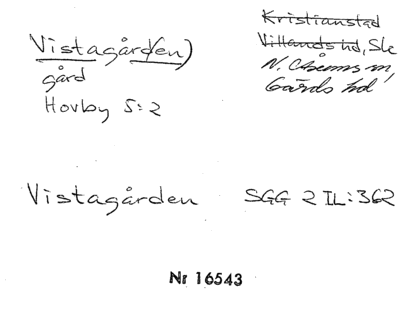 Vistagård(en)
gård
Hovby 5:2
Kristianstad
Villands hd, Sk
N. Åsums sn,
Gärds hd
Vistagården SGG 2 IL:362
Nr 16543